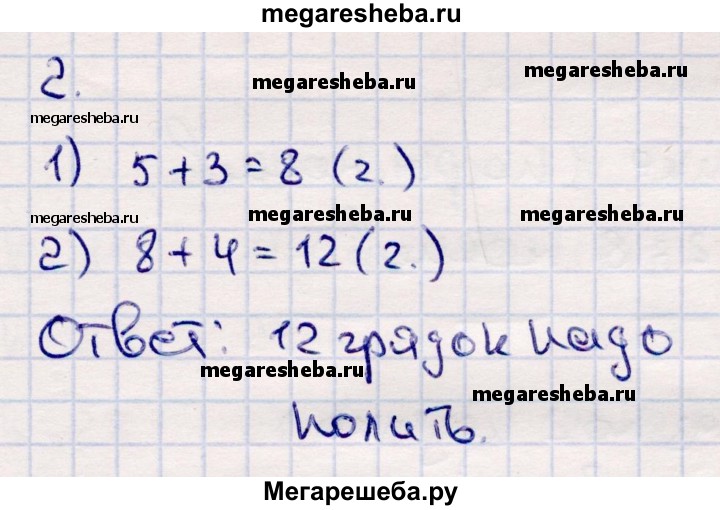 megaresheba.ru
2.
megaresheba.ru megaresheba.ru
megaresheba.ru
1) 5+3=8 (г.)
megaresheba.ru megaresheba.ru megaresheba.ru
2) 8+4=12 (г.)
Ответ: 12 грядок надо
megaresheba.ru
megaresheba.ru
полить.
Мегарешеба.ру